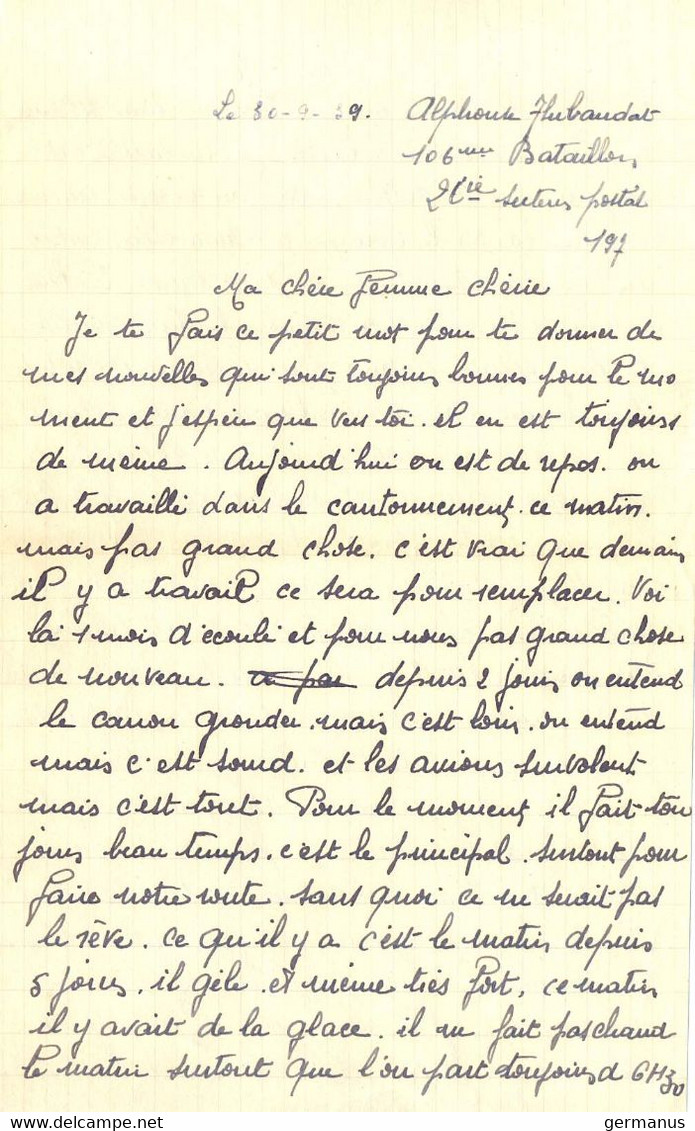 Le 30-9-39. Alphonse Thibaudat
106ème Bataillon
2Cie secteur postal
197
Ma chère Femme chérie
Je te fais ce petit mot pour te donner de
mes nouvelles qui sont toujours bonnes pour le mo
ment et j'espère que vers toi. il en est toujours
de même. Aujourd'hui on est de repos. on
a travaillé dans le cantonnement. ce matin.
mais pas grand chose. c'est vrai que demain
il y a travail ce sera pour remplacer. Voi
là 1 mois d'écoulé et pour nous pas grand chose
de nouveau. depuis 2 jours on entend
le canon gronder. mais c'est loin. on entend
mais c'est sourd. et les avions survolent
mais c'est tout. Pour le moment il fait tou
jours beau temps. c'est le principal. surtout pour
faire notre route. sans quoi ce ne serait pas
le rêve. ce qu'il y a c'est le matin depuis
5 jours. il gèle. et même très fort. ce matin
il y avait de la glace. il ne fait pas chaud
le matin surtout que l'on part toujours à 6H30
germanus